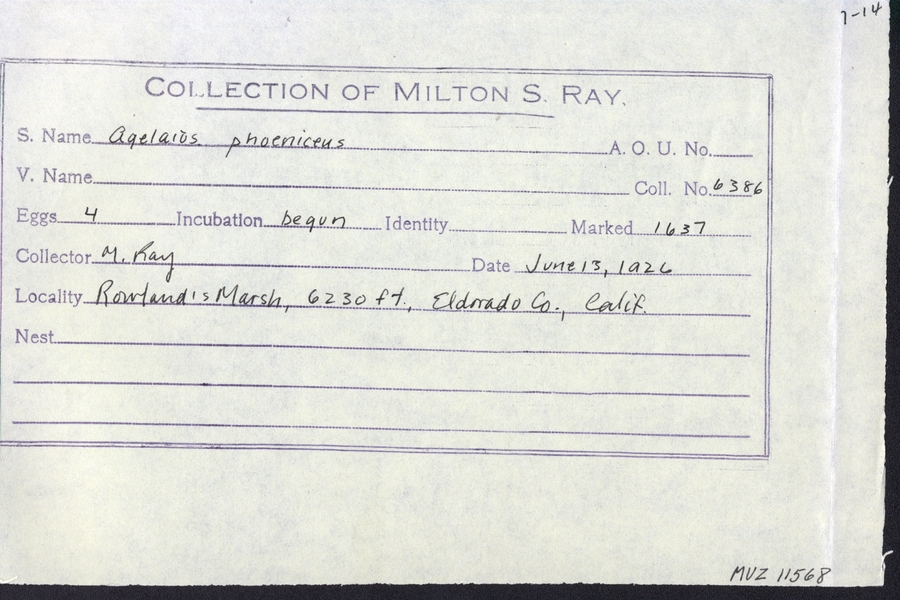 7-14
COLLECTION OF MILTON S. RAY.
S. Name Agelaius phoeniceus A. O. U. No.
V. Name Coll. No. 6386
Eggs 4 Incubation begun Identity Marked 1637
Collector M. Ray Date June 13, 1926
Locality Rowland's Marsh, 6230 ft., Eldorado Co., Calif.
Nest
MVZ 11568